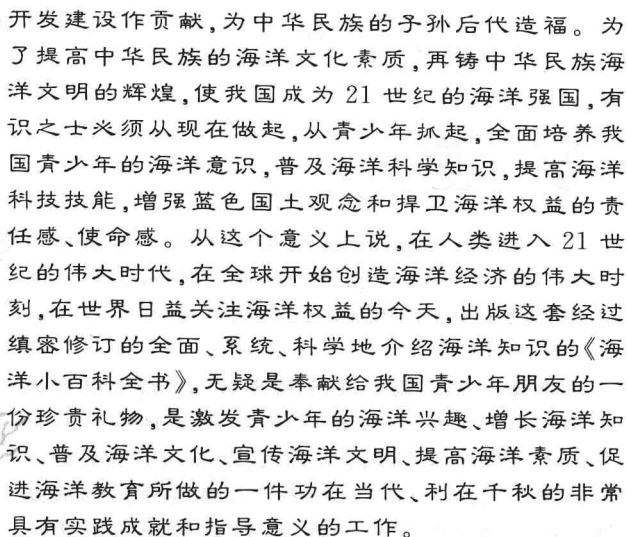 开发建设作贡献,为中华民族的子孙后代造福。为
了提高中华民族的海洋文化素质,再铸中华民族海
洋文明的辉煌,使我国成为 21 世纪的海洋强国,有
识之士必须从现在做起,从青少年抓起,全面培养我
国青少年的海洋意识,普及海洋科学知识,提高海洋
科技技能,增强蓝色国土观念和捍卫海洋权益的责
任感、使命感。从这个意义上说,在人类进入 21 世
纪的伟大时代,在全球开始创造海洋经济的伟大时
刻,在世界日益关注海洋权益的今天,出版这套经过
缜密修订的全面、系统、科学地介绍海洋知识的《海
洋小百科全书》,无疑是奉献给我国青少年朋友的一
份珍贵礼物,是激发青少年的海洋兴趣、增长海洋知
识、普及海洋文化、宣传海洋文明、提高海洋素质、促
进海洋教育所做的一件功在当代、利在千秋的非常
具有实践成就和指导意义的工作。